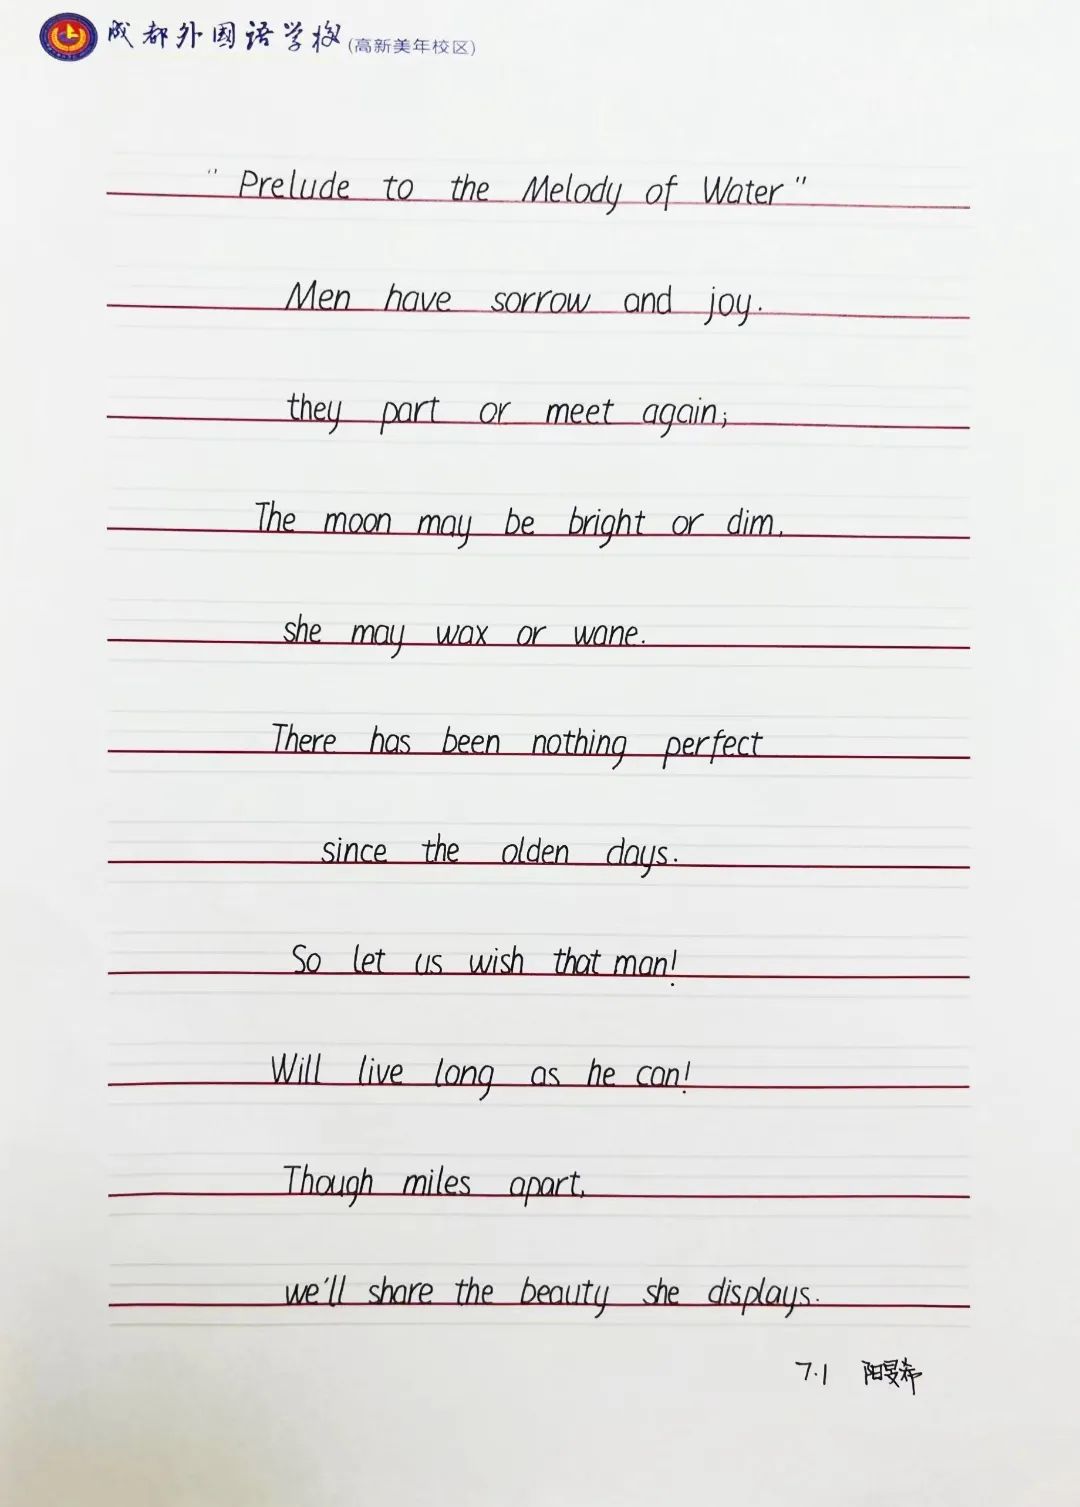 成都外国语学校(高新美年校区)
"Prelude to the Melody of Water"
Men have sorrow and joy.
they part or meet again;
The moon may be bright or dim,
she may wax or wane.
There has been nothing perfect
since the olden days.
So let us wish that man!
Will live long as he can!
Though miles apart,
we'll share the beauty she displays.
7.1 阳旻希